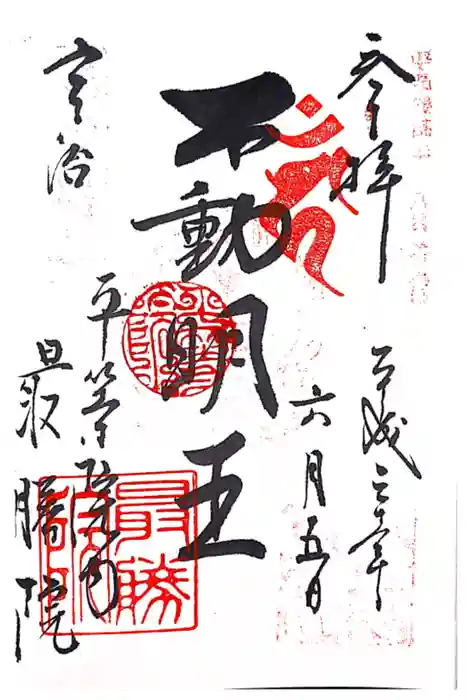 参拝
平成三十年
六月五日
不動明王
宇治
平等院内
最勝院
最勝